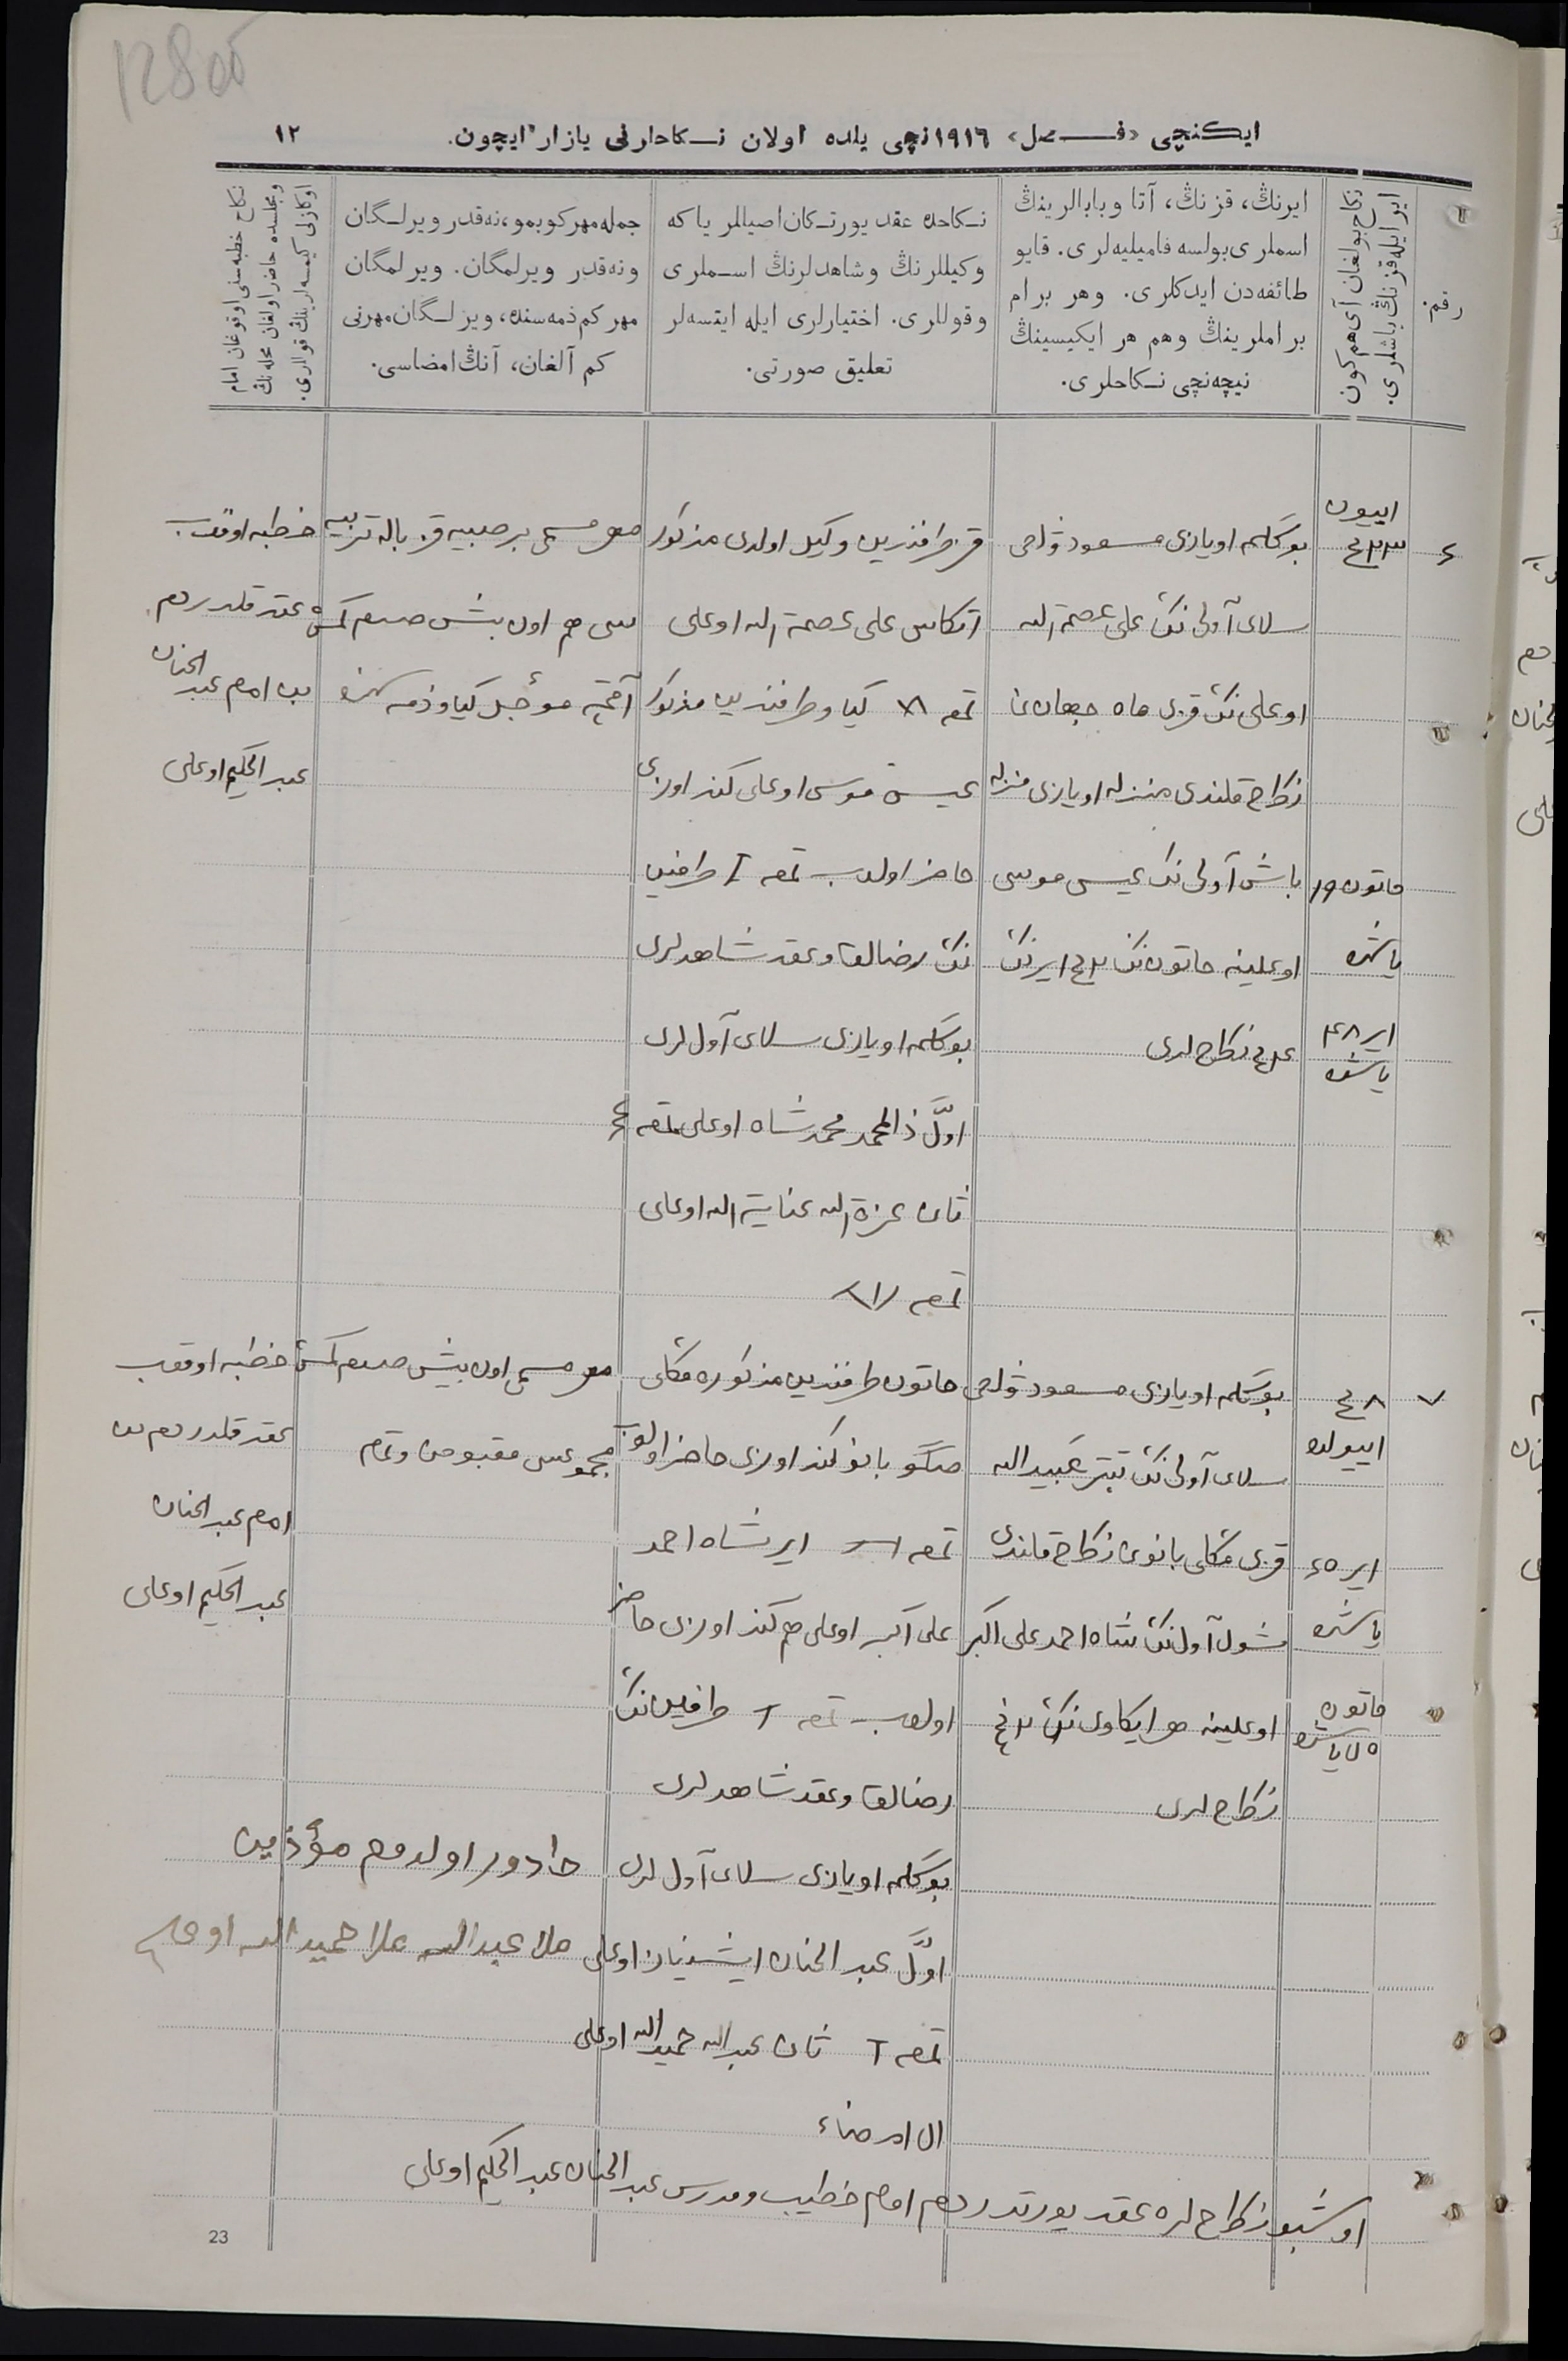 12800
ایكنچی «فصل» ١٩١٦نچی یلده اولان نكاحلرنی یازار ایچون.
١٢
رقم.
ایر ایله قزنڭ یاشلری.
نكاح بولغان آی هم كون
ایرنڭ، قزنڭ، آتا و بابالرینڭ
اسملری بولسه فامیلیه‌لری. قایو
طائفه‌دن ایدكلری. وهر برام
براملرینڭ وهم هر ایكیسینڭ
نیچه‌نچی نكاحلری.
نكاحده عقد یورتكان اصیللر یا كه
وكیللرنڭ وشاهدلرنڭ اسملری
وقوللری. اختیارلری ایله ایتسه‌لر
تعلیق صورتی.
جمله مهر كوبمو، نه‌قدر ویرلگان
ونه‌قدر ویرلمگان. ویرلمگان
مهر كم ذمه‌سنده، ویرلگان مهرنی
كم آلغان، آنڭ امضاسی.
نكاح خطبه‌سنی اوقوغان امام
ومجلسده حاضر اولغان محله‌نڭ
اوكازنی كیمسه‌لرینڭ قوللری.
٦
اییون
٢٣نچی
خاتون ١٩
یاشنده
ایر ٤٨
یاشنده
بوكلمه اویازی مسعود ولصی
سلای آولی ننك علی عصمة الله
اوغلی ننك قزی ماه جهان نی
نكاح قلندی منزله اویازی منزله
باش آولی ننك عیسی موسی
اوغلینه خاتون ننك ٢نچی ایرننك
٤نچی نكاح لری
قز طرفندین وكیل اولدی مذكور
اتكاسی علی عصمة الله اوغلی
تمغه ٧١ كیاو طرفندین مذكور
عیسی موسی اوغلی كند اوزی
حاضر اولوب تمغه T طرفین
ننك رضالقا وعقد شاهدلری
بوكلمه اویازی سلای آول لری
اوّل محمد شاه اوغلی تمغه
ثانی عزة الله عنایة الله اوغلی
تمغه
مهر مسمی بر صبیه قز باله تربیه
سی هم اون بیش صوم كمش
آقچه مؤجل كیاو ذمه سنده
خطبه اوقوب
عقد قلدردم
امام عبد الحنان
عبد الحكیم اوغلی
٧
٨نچی
اییولده
ایر ٤٥
یاشنده
خاتون
یاشنده
بوكلمه اویازی مسعود ولصی
سلای آولی ننك عبید الله
قزی بانونی نكاح قلندی
شول آول ننك شاه احمد علی اكبر
اوغلینه هر ایكاوی ننك ٢نچی
نكاح لری
خاتون طرفندین مذكوره
بانو كند اوزی حاضر اولوب
تمغه ایر شاه احمد
علی اكبر اوغلی هم كند اوزی حاضر
اولوب تمغه T طرفین ننك
رضالقا وعقد شاهدلری
بوكلمه اویازی سلای آول لری
اوّل عبد الحنان ایشنیاز اوغلی
تمغه T ثانی عبد الله حمید الله اوغلی
امضاء
مهر مسمی اون بیش صوم كمش
مجموعسی مقبوض وتمام
خطبه اوقوب
عقد قلدردم من
امام عبد الحنان
عبد الحكیم اوغلی
حاضر اولدم مؤذن
ملا عبد الله ملا حمید الله اوغلی
اوشبو نكاح لره عقد یورتدردم امام خطیب ومدرس عبد الحنان عبد الحكیم اوغلی
23